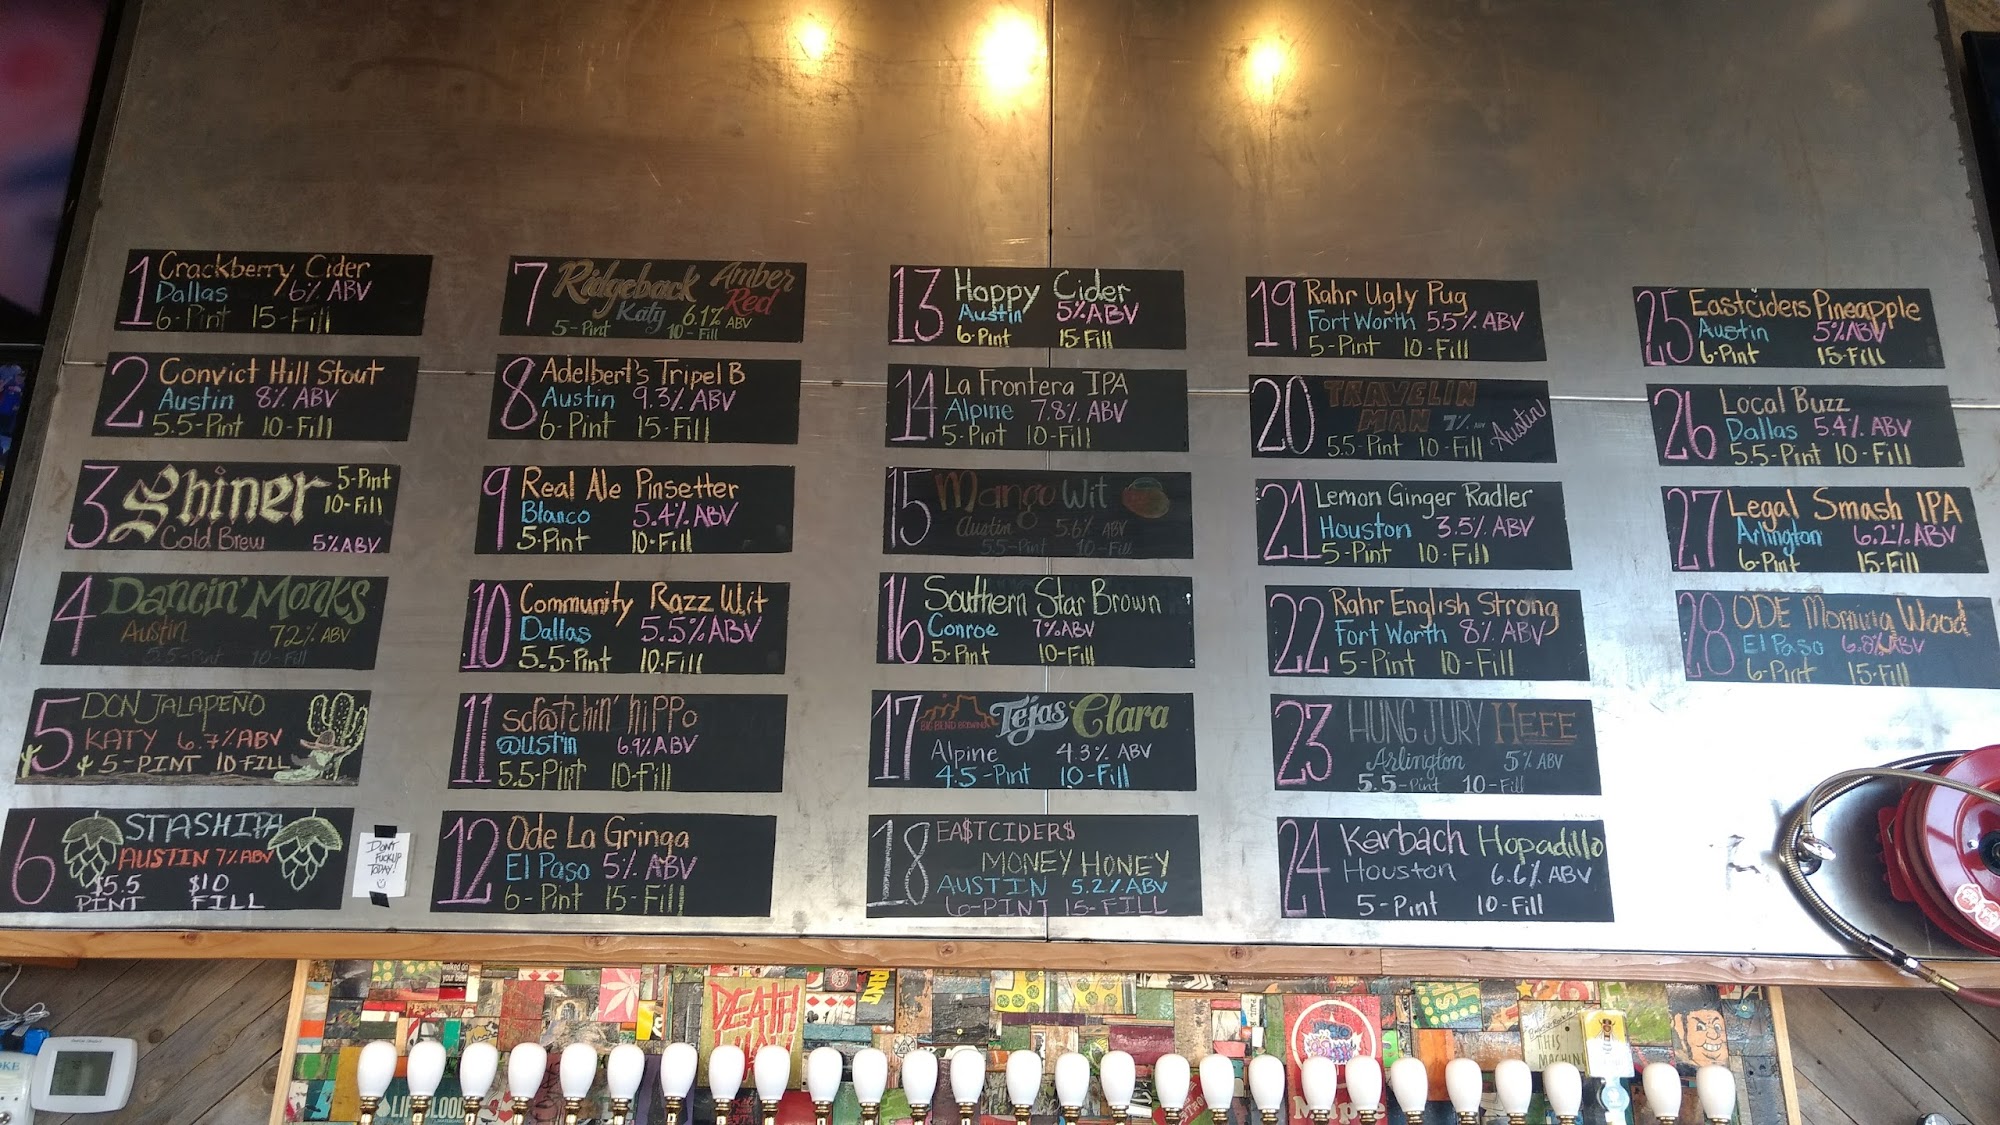 1 Crackberry Cider
Dallas 6% ABV
6-Pint 15-Fill
2 Convict Hill Stout
Austin 8% ABV
5.5-Pint 10-Fill
3 Shiner 5-Pint
10-Fill
Cold Brew 5% ABV
4 Dancin' Monks
Austin 7.2% ABV
5.5-Pint 10-Fill
5 DON JALAPEÑO
KATY 6.7% ABV
5-PINT 10 FILL
6 STASH IPA
AUSTIN 7% ABV
$5.5 $10
PINT FILL
DON'T
FUCK UP
TODAY!
7 Ridgeback Amber
Red
Katy 6.1% ABV
5-Pint 10-Fill
8 Adelbert's Tripel B
Austin 9.3% ABV
6-Pint 15-Fill
9 Real Ale Pinsetter
Blanco 5.4% ABV
5-Pint 10-Fill
10 Community Razz Wit
Dallas 5.5% ABV
5.5-Pint 10-Fill
11 scratchin' hippo
@ustin 6.9% ABV
5.5-Pint 10-Fill
12 Ode La Gringa
El Paso 5% ABV
6-Pint 15-Fill
13 Hoppy Cider
Austin 5% ABV
6-Pint 15-Fill
14 La Frontera IPA
Alpine 7.8% ABV
5-Pint 10-Fill
15 Mango Wit
Austin 5.6% ABV
5.5-Pint 10-Fill
16 Southern Star Brown
Conroe 7% ABV
5-Pint 10-Fill
17 BIG BEND BREWING Tejas Clara
Alpine 4.3% ABV
4.5-Pint 10-Fill
18 EA$TCIDER$
MONEY HONEY
AUSTIN 5.2% ABV
6-PINT 15-FILL
19 Rahr Ugly Pug
Fort Worth 5.5% ABV
5-Pint 10-Fill
20 TRAVELIN
MAN 7% ABV Austin
5.5-Pint 10-Fill
21 Lemon Ginger Radler
Houston 3.5% ABV
5-Pint 10-Fill
22 Rahr English Strong
Fort Worth 8% ABV
5-Pint 10-Fill
23 HUNG JURY HEFE
Arlington 5% ABV
5.5-Pint 10-Fill
24 Karbach Hopadillo
Houston 6.6% ABV
5-Pint 10-Fill
25 Eastciders Pineapple
Austin 5% ABV
6-Pint 15-Fill
26 Local Buzz
Dallas 5.4% ABV
5.5-Pint 10-Fill
27 Legal Smash IPA
Arlington 6.2% ABV
6-Pint 15-Fill
28 ODE Morning Wood
El Paso 6.8% ABV
6-Pint 15-Fill
DEATH
THIS
MACHINE
LIFEBLOOD
Maple